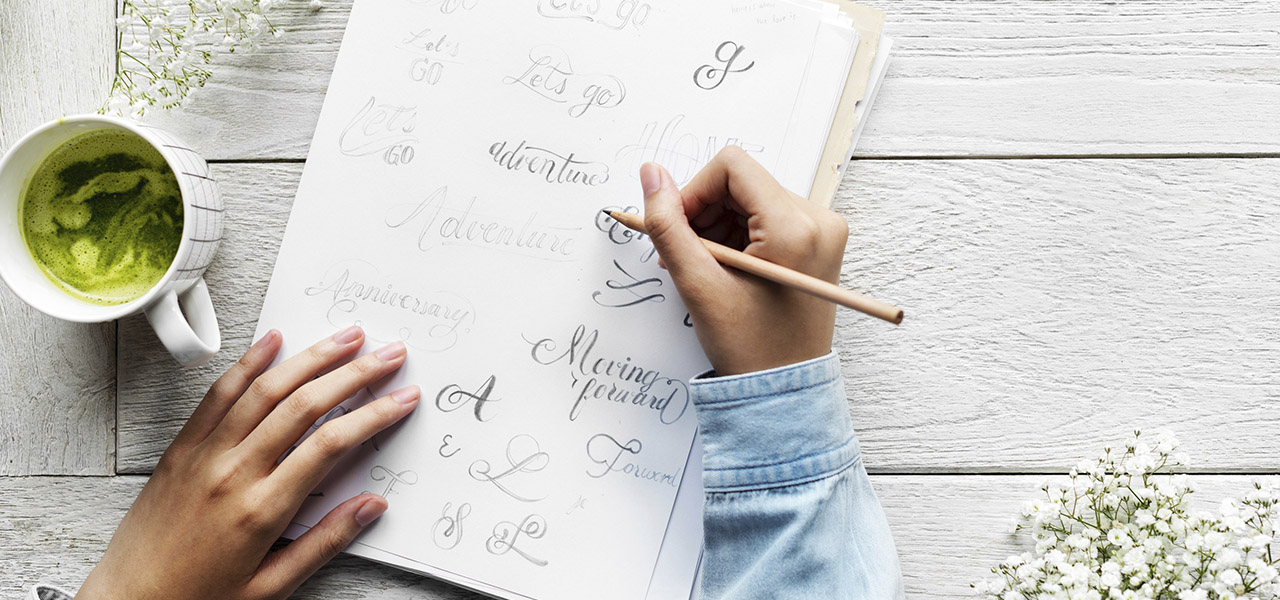 Let's go
Let's
GO
Let's go
g
Let's
GO
adventure
HOME
Adventure
Anniversary
Moving
forward
A
&
L
Forward
T
S
L